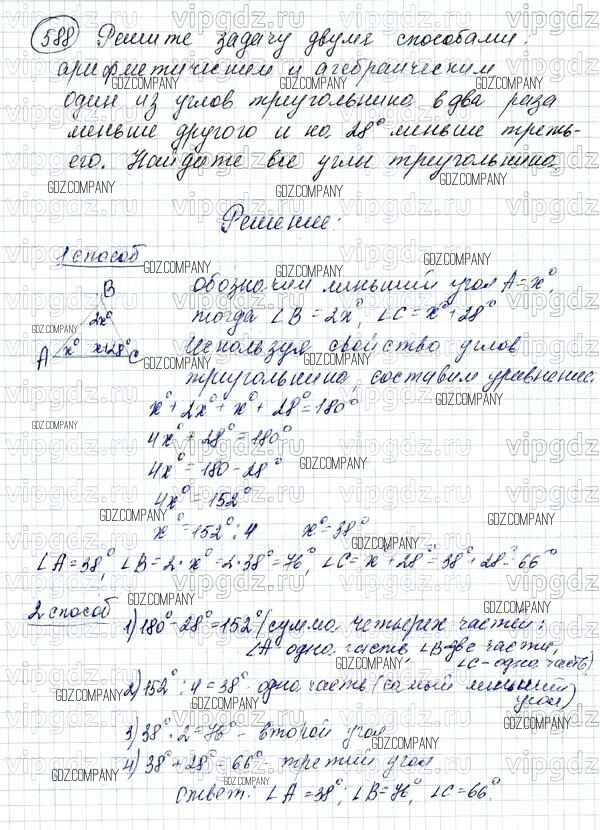 588 Решите задачу двумя способами:
арифметическим и агебраическим
один из углов треугольника в два раза
меньше другого и на 28° меньше треть-
его. Найдите все углы треугольника.
Решение:
1 способ
обозначим меньший угол A = x°,
B
тогда ∠B = 2x°, ∠C = x° + 28°
2x°
A x° x+28° C
Используя свойства углов
треугольника, составим уравнение.
x° + 2x° + x° + 28° = 180°
4x° + 28° = 180°
4x° = 180 - 28°
4x° = 152°
x° = 152° : 4 x° = 38°
∠A = 38°, ∠B = 2 · x° = 2 · 38° = 76°, ∠C = x° + 28° = 38° + 28° = 66°
2 способ
1) 180° - 28° = 152° (сумма четырех частей:
∠A одна часть, ∠B - две части,
∠C - одна часть)
2) 152° : 4 = 38° одна часть (самый меньший
угол)
3) 38° · 2 = 76° - второй угол
4) 38° + 28° = 66° - третий угол
ответ: ∠A = 38°, ∠B = 76°, ∠C = 66°